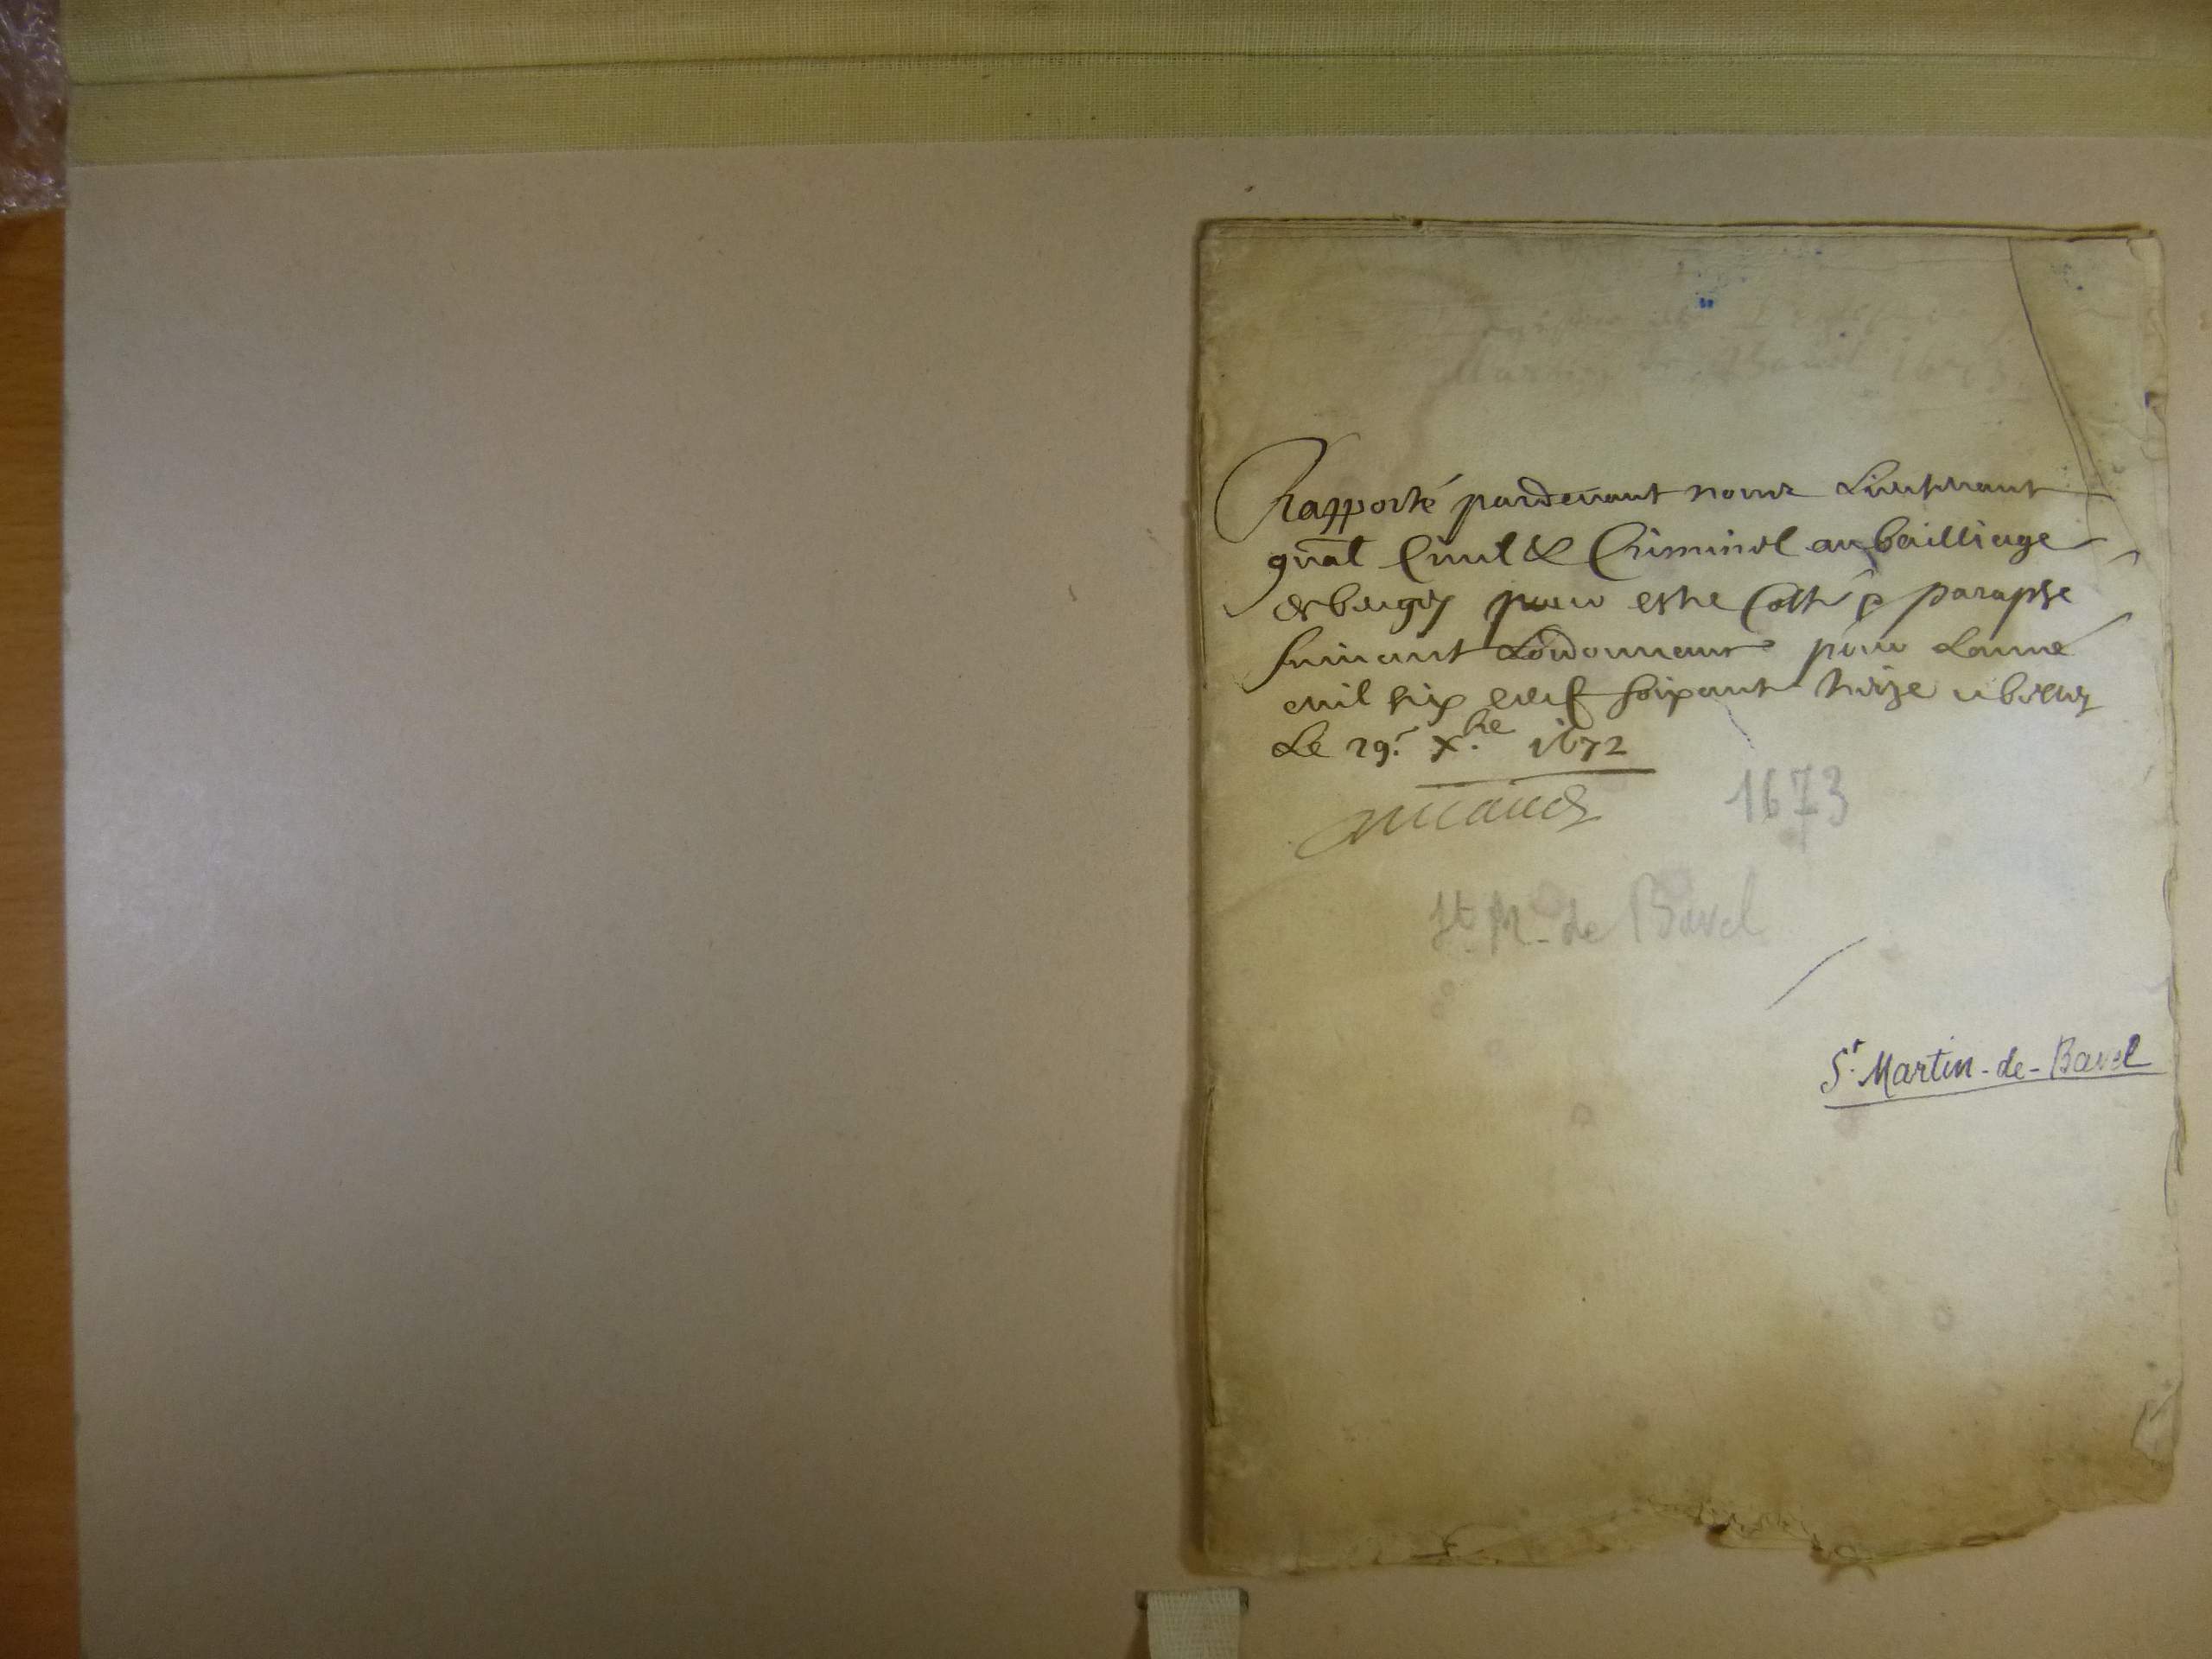 Rapporté pardevant nous Lieutenant
gnal Civil & Criminel au bailliage
de bugey pour estre Cotté & paraphe
suivant Lordonnance pour Lanné
mil six cent soixant treize a belley
Le 29.e xbre 1672
1673
St M. de Bavel
St. Martin-de-Bavel